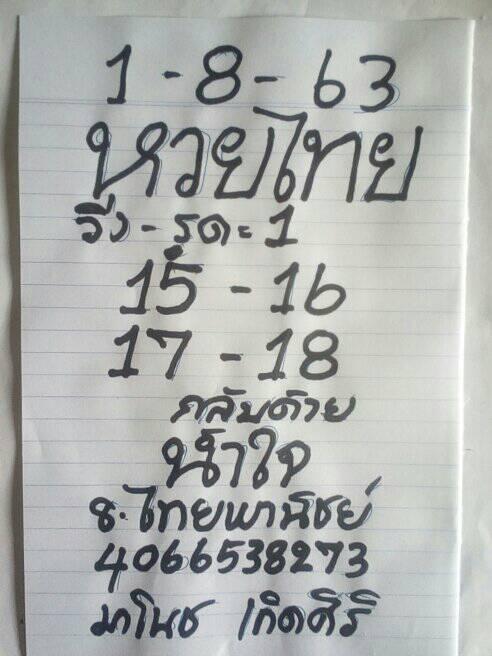 1 - 8 - 63
หวยไทย
วิ่ง - รูด = 1
15 - 16
17 - 18
กลับด้วย
น้ำใจ
ธ. ไทยพานิชย์
4066538273
มาโนช เกิดศิริ